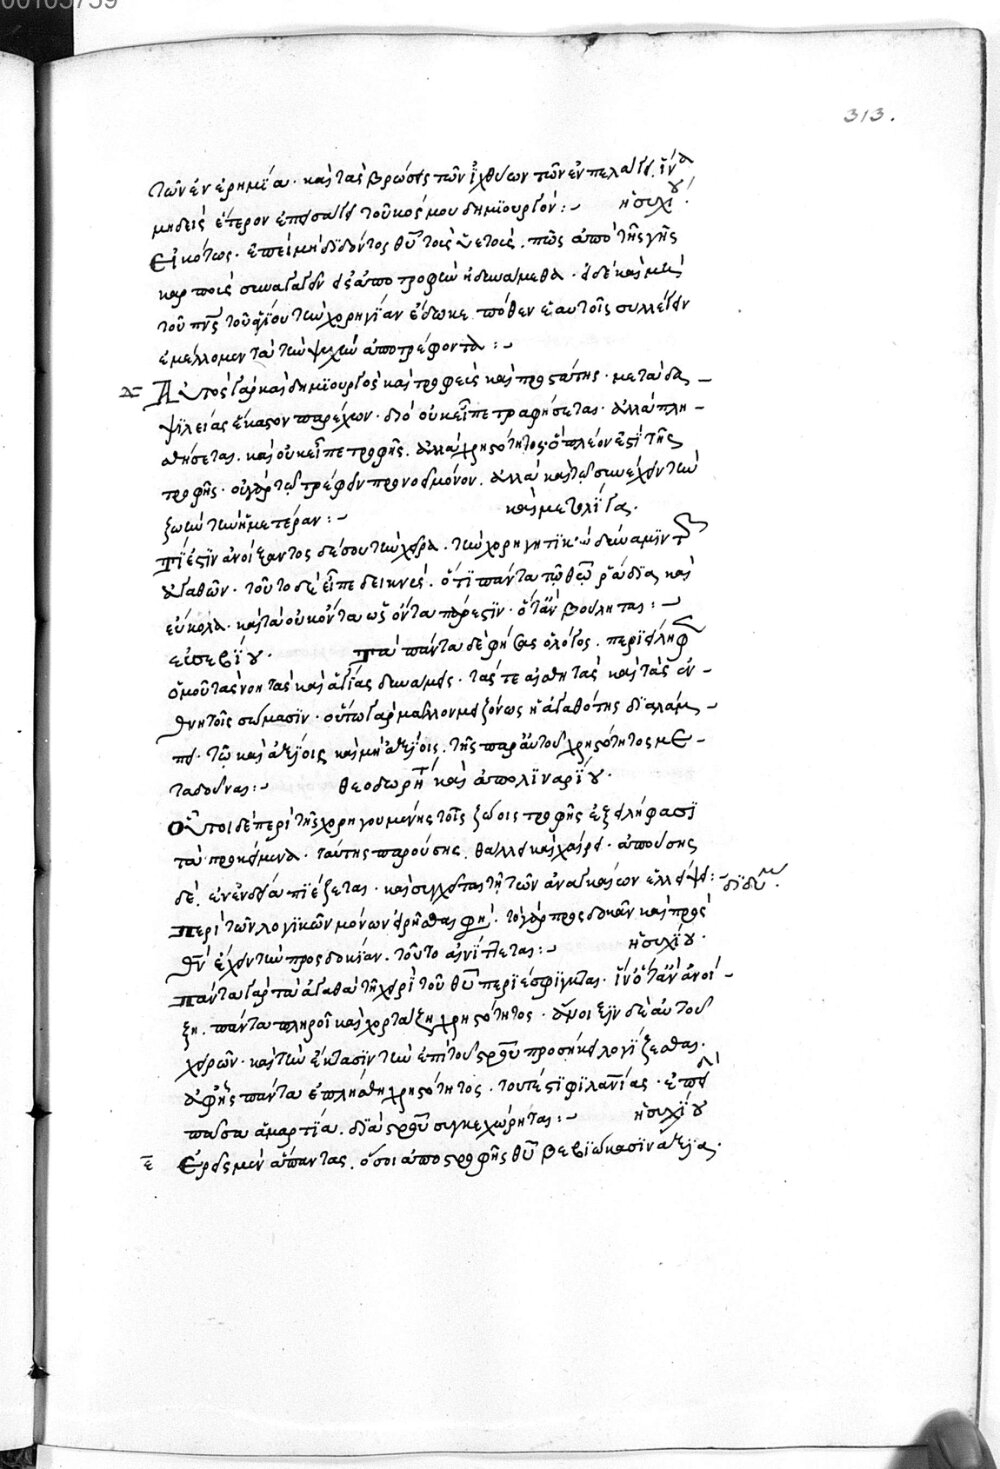 00105759
313.
τῶν ἐν ἐρημία. καὶ τὰς βρώσεις τῶν ἰχθύων τῶν ἐν πελάγει. ἵνα
μηδεὶς ἕτερον ἐπείσαγει τοῦ κόσμου δημιουργόν :- ἡσυχίου.
Εἰκότως. ἐπεὶ μὴ διδόντος θῦ τοῖς ὑετοῖς. πῶς ἀπὸ τῆς γῆς
καρποὺς συναγαγεῖν
τοῦ πνς τοῦ ἁγίου τὴν χορηγίαν ἔδωκε πόθεν ἑαυτοῖς συλλέγειν
ἐμέλλομεν τὰ τὴν ψυχὴν ἀποτρέφοντα :-
Αὐτὸς γὰρ καὶ δημιουργὸς καὶ τροφεὺς καὶ προστάτης. μετὰ δα-
ψιλείας ἕκαστον παρέχων. διὸ οὐκ εἶπε τραφήσεται. ἀλλὰ πλη-
σθήσεται. καὶ οὐκ εἶπε τροφῆς. ἀλλὰ χρηστότητος ὃ πλέον ἐστὶ τῆς
τροφῆς. οὐ γὰρ τῷ τρέφειν προνοεῖ μόνον. ἀλλὰ καὶ τῷ συνέχειν τὴν
ζωὴν τὴν ἡμετέραν :-
καὶ μετ ὀλίγα.
Τί ἐστιν ἀνοίξαντος δέ σου τὴν χεῖρα. τὴν χορηγητικὴν δύναμιν τῶν
ἀγαθῶν. τοῦτο δὲ εἶπε δεικνὺς. ὅτι πάντα τῷ θῶ ῥάδια καὶ
εὔκολα. καὶ τὰ οὐκ ὄντα ὡς ὄντα πάρεστιν. ὅταν βούληται :-
εὐσεβίου. Τὰ πάντα δὲ φήσας ὁ λόγος. περιείληφεν
ὁμοῦ τὰς νοητὰς καὶ ἁγίας δυνάμεις. τάς τε αἰσθητὰς καὶ τὰς ἐν-
θνητοῖς σώμασιν. οὕτω γὰρ μᾶλλον μειζόνως ἡ ἀγαθότης διαλάμ-
πει. τῷ καὶ ἀξίοις καὶ μὴ ἀξίοις. τῆς παρ αὐτοῦ χρηστότητος με-
ταδοῦναι :- θεοδωρήτ καὶ ἀπολιναρίου.
Οὗτοι δὲ περὶ τῆς χορηγουμένης τοῖς ζώοις τροφῆς ἐξειλήφασι
τὰ προκείμενα. ταύτης παρούσης. θάλλει καὶ χαίρει. ἀπούσης
δὲ. ἐν ἐνδεία πιέζεται. καὶ συγχεῖται τῆ τῶν ἀναγκαίων ἐλλείψει :- διδύμ.
Περὶ τῶν λογικῶν μόνων εἰρῆσθαι φησὶ. τὸ γὰρ προσδοκᾶν καὶ πρὸς
θν ἔχειν τὴν προσδοκίαν. τοῦτο αἰνίττεται :- ἡσυχίου.
Πάντα γὰρ τὰ ἀγαθὰ τῆ χειρὶ τοῦ θῦ περιέσφιγκται. ἵν ὅταν ἀνοί-
ξη. πάντα πληροῖ καὶ χορτάζη χρηστότητος. ἄνοιξιν δὲ αὐτοῦ
χειρῶν. καὶ τὴν ἔκτασιν τὴν ἐπὶ τοῦ στρου προσήκει λογίζεσθαι.
ἀφ ἧς πάντα ἐπλήσθη χρηστότητος. τουτέστι φιλανίας. ἐπεὶ
πᾶσα ἁμαρτία. διὰ στρου συγκεχώρηται :- ἡσυχίου
Ἐρεῖς μὲν ἅπαντας. ὅσοι ἀποστροφῆς θῦ βεβιώκασιν ἄξια.